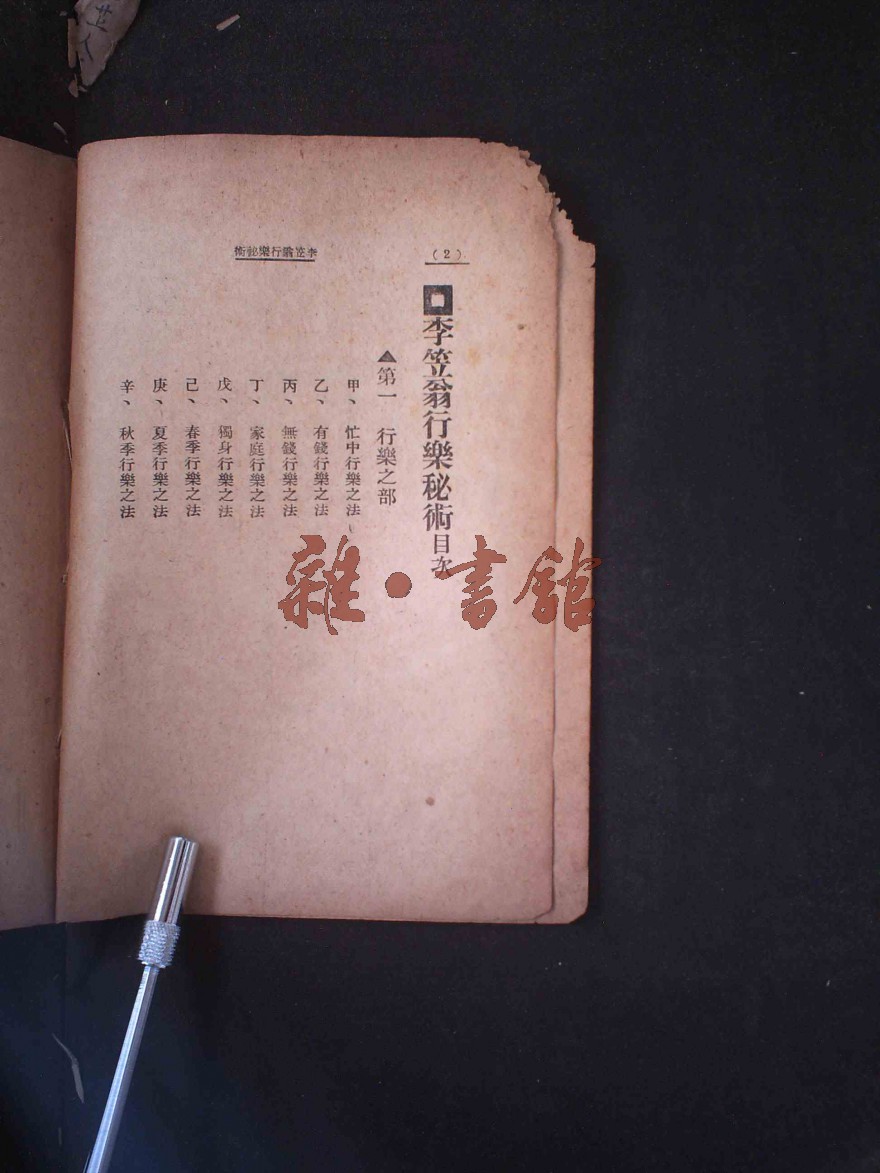 (2)
李笠翁行樂秘術
李笠翁行樂秘術目次
▲第一 行樂之部
甲、忙中行樂之法
乙、有錢行樂之法
丙、無錢行樂之法
丁、家庭行樂之法
戊、獨身行樂之法
己、春季行樂之法
庚、夏季行樂之法
辛、秋季行樂之法
雜·書館